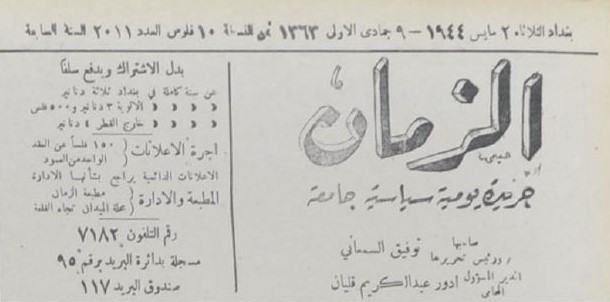 بغداد الثلاثاء ٢ مايس ١٩٤٤ — ٩ جمادى الاولى ١٣٦٣ ثمن النسخة ١٠ فلوس العدد ٢٠١١ السنة السابعة
الزمان
جريدة يومية سياسية جامعة
صاحبها ورئيس تحريرها توفيق السمعاني
المدير المسؤول المحامي ادور عبدالكريم قليان
بدل الاشتراك ويدفع سلفا
عن سنة كاملة في بغداد ثلاثة دنانير
» » » الالوية ٣ دنانير و ٥٠٠ فلس
» » » خارج القطر ٤ دنانير
اجرة الاعلانات ١٥٠ فلساً عن العقد الواحد من السود
الاعلانات الدائمية يراجع بشأنها الادارة
المطبعة والادارة مطبعة الزمان محلة الميدان تجاه القلعة
رقم التلفون ٧١٨٢
مسجلة بدائرة البريد برقم ٩٥
صندوق البريد ١١٧